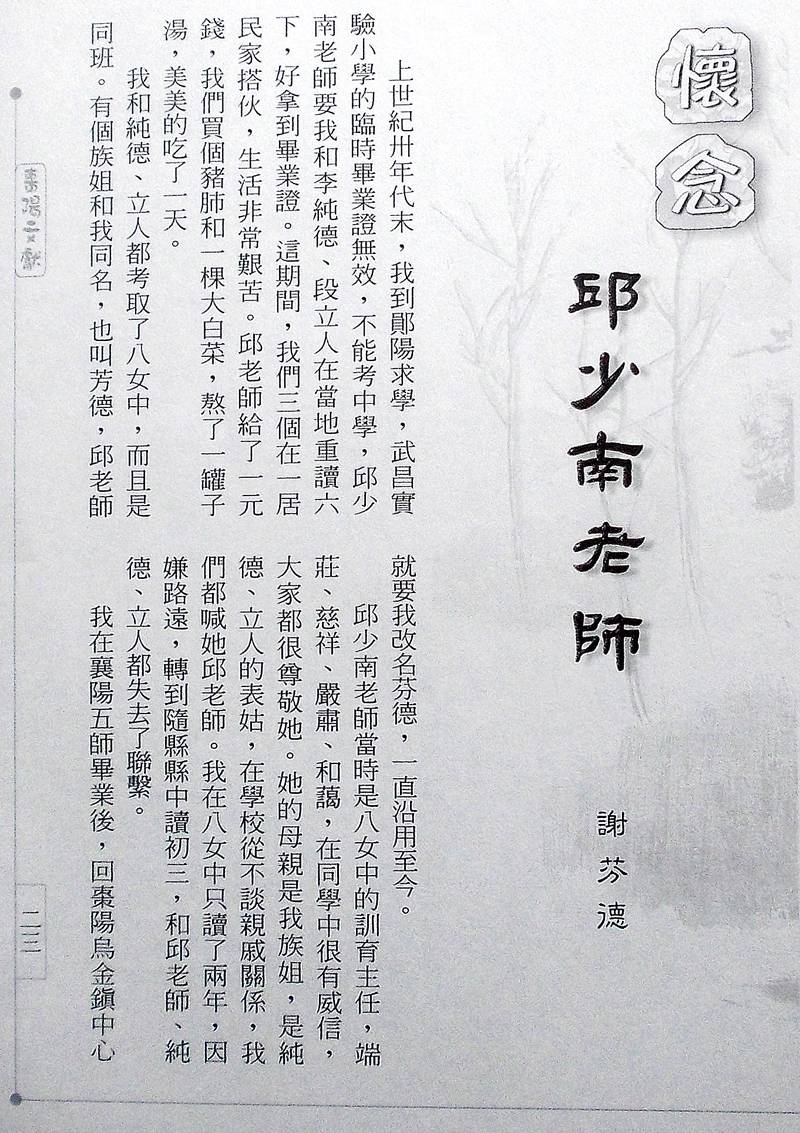 懷念
邱少南老師
謝芬德
上世紀卅年代末，我到鄖陽求學，武昌實
驗小學的臨時畢業證無效，不能考中學，邱少
南老師要我和李純德、段立人在當地重讀六
下，好拿到畢業證。這期間，我們三個在一居
民家搭伙，生活非常艱苦。邱老師給了一元
錢，我們買個豬肺和一棵大白菜，熬了一罐子
湯，美美的吃了一天。
我和純德、立人都考取了八女中，而且是
同班。有個族姐和我同名，也叫芳德，邱老師
就要我改名芬德，一直沿用至今。
邱少南老師當時是八女中的訓育主任，端
莊、慈祥、嚴肅、和藹，在同學中很有威信，
大家都很尊敬她。她的母親是我族姐，是純
德、立人的表姑，在學校從不談親戚關係，我
們都喊她邱老師。我在八女中只讀了兩年，因
嫌路遠，轉到隨縣縣中讀初三，和邱老師、純
德、立人都失去了聯繫。
我在襄陽五師畢業後，回棗陽烏金鎮中心
棗陽文獻
二三